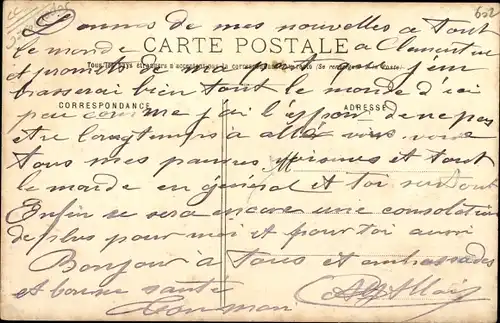 Donnes de mes nouvelles a tout
le monde a Clementine
CARTE POSTALE
et promets de ma part que j'em
Tous les pays étrangers n'acceptent pas la correspondance au recto (Se renseigner à la Poste)
brasserai bien tout le monde d'ici
CORRESPONDANCE ADRESSE
peu comme j'ai l'espoir de ne pas
etre longtemps a aller vous voir
tous mes pauvres Voisines et tout
le monde en général et toi surtout
Enfin se sera encore une consolation
de plus pour moi et pour toi aussi
Bonjour à Tous et embrassades
et bonne santé
Ton mari